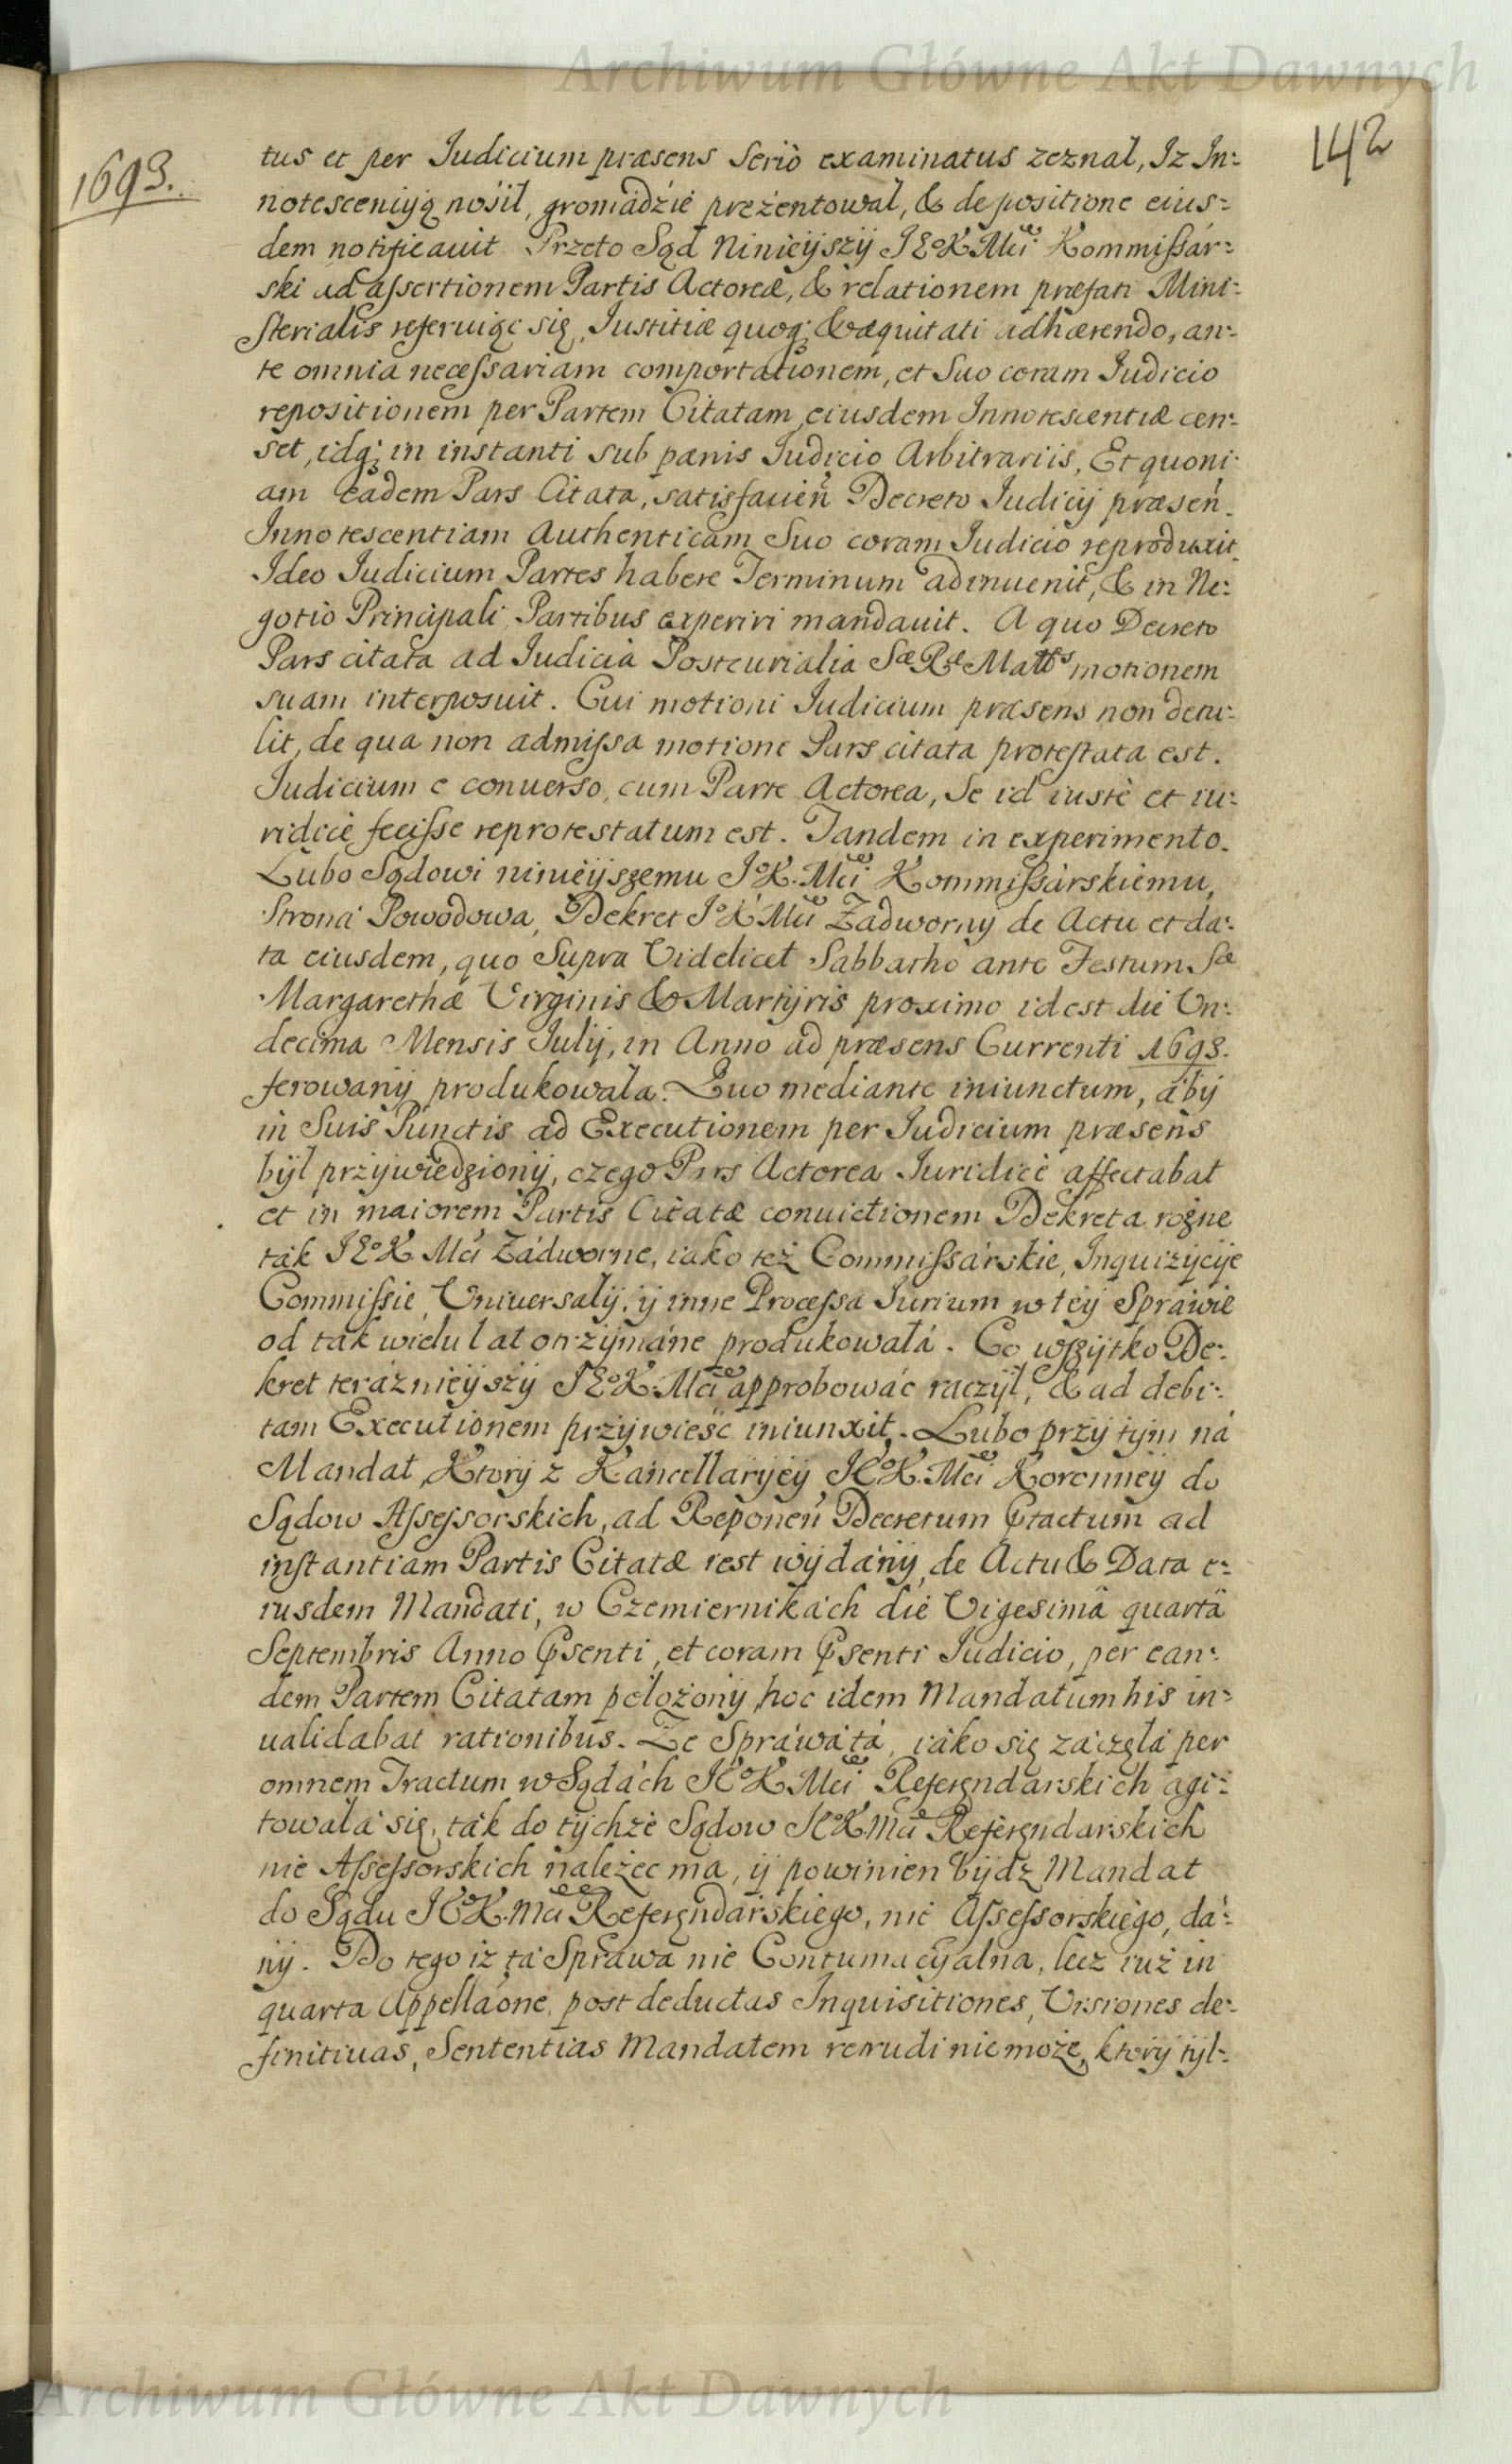 Archiwum Główne Akt Dawnych
142
1693.
tus et per Judicium præsens Seriò examinatus zeznal, Iz In:
notesceniyą nosił, gromadzie prezentowal, & depositione eius:
dem notificauit Przeto Sąd Ninieyszy JEoKMci Kommissár:
ski ad assertionem Partis Actoreæ, & relationem præfati Mini:
sterialis referuiąc się, Justitiæ quoq; & æquitati adhærendo, an:
te omnia necessariam comportationem, et Suo coram Judicio
repositionem per Partem Citatam, eiusdem Innotescentiæ cen:
set, idq; in instanti sub pænis Judicio Arbitrariis, Et quoni:
am eadem Pars Citata, satisfacień Decreto Judicij præseń.
Innotescentiam Authenticam Suo coram Judicio reproduxit
Ideo Judicium Partes habere Terminum adinuenit, & in Ne:
gotio Principali Partibus experiri mandauit. A quo Decreto
Pars citata ad Judicia Postcurialia Sæ Ræ Mattis motionem
suam interposuit. Cui motioni Judicium præsens non detu:
lit, de qua non admissa motione Pars citata protestata est.
Judicium e conuerso, cum Parte Actorea, Se id iustè et iu:
ridicè fecisse reprotestatum est. Tandem in experimento.
Lubo Sądowi ninieyszemu JoK.Mci Kommissárskiemu,
Strona Powodowa, Dekret JoK Mci Zadworny de Actu et da:
ta eiusdem, quo Supra Videlicet Sabbatho ante Festum Sæ
Margarethæ Virginis & Martyris proximo id est die Un:
decima Mensis Julij, in Anno ad præsens Currenti 1693.
ferowany produkowala. Quo mediante iniunctum, aby
in Suis Punctis ad Executionem per Judicium præsens
był przywiedziony, czego Pars Actorea Juridicè affectabat
et in maiorem Partis Citatæ conuictionem Dekreta rożne
ták JEoK Mci Zádworne, iako też Commissárskie, Inquizycije
Commissie, Uniuersaly, y inne Processa Jurium w tey Sprawie
od tak wielu lat otrzymáne produkowałá. Co wszytko De:
kret teráznieyszy JEoK.Mci approbowác raczył, & ad debi:
tam Executionem przywieść iniunxit. Lubo przy tym ná
Mandat, Ktory z Káncellaryey JEoK.Mci Koronney do
Sądow Assessorskich, ad Reponeń Decretum Ptactum ad
instantiam Partis Citatæ iest wydány, de Actu & Data e:
iusdem Mandati, w Czemiernikách die Vigesimâ quartâ
Septembris Anno Psenti, et coram Psenti Judicio, per ean:
dem Partem Citatam położony, hoc idem Mandatum his in:
ualidabat rationibus. Ze Spráwá tá, iáko się záczęlá per
omnem Tractum w Sądách JEoK Mci Referęndarskich agi:
towala się, ták do tychże Sądow JEoKMci Referęndarskich
nie Assessorskich należec ma, y powinien bydz Mandat
do Sądu JEoK.Mci Referęndárskiego, nie Assessorskiego, dá:
ny. Do tego iz tá Spráwa nie Contumacyalna, lecz iuż in
quarta Appellaóne, post deductas Inquisitiones, Visiones de:
finitiuas, Sententias Mandatem retrudi nie może, ktory tyl:
Archiwum Główne Akt Dawnych